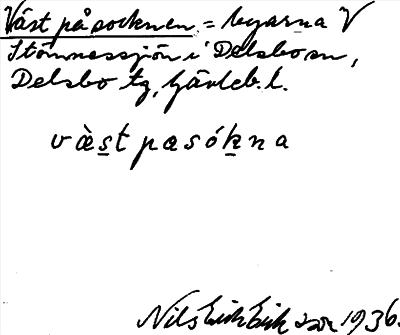 Väst på socknen = byarna V
Stömnessjön i Delsbo sn,
Delsbo tg, Gävleb. l.
vàs̲t pasók̲na
Nils Erik Eriksson 1936.